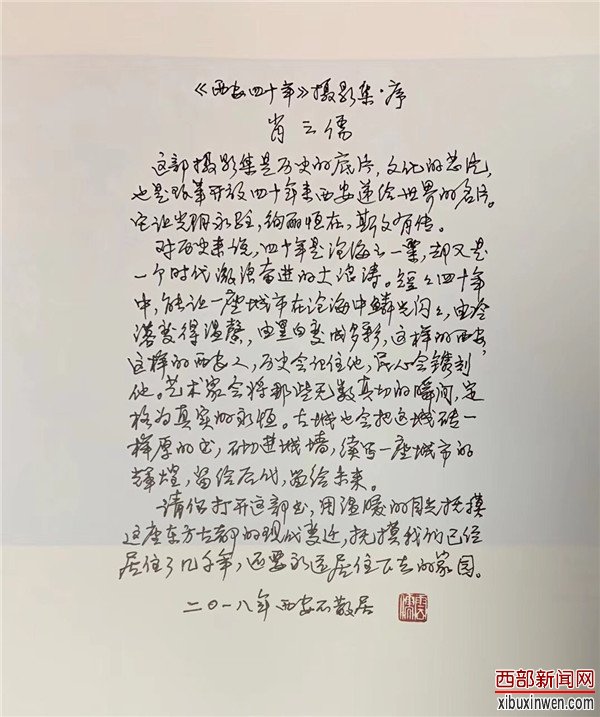 《西安四十年》摄影集·序
肖云儒
这部摄影集是历史的底片，文化的芯片，
也是改革开放四十年来西安递给世界的名片。
它让光明永驻，绚丽恒在，斯文有传。
对历史来说，四十年是沧海之一粟，却又是
一个时代激浪奋进的大浪涛。短短四十年
中，能让一座城市在沧海中鳞光闪闪，由冷
落变得温馨，由黑白变成多彩，这样的西安，
这样的西安人，历史会记住他，民心会镌刻
他。艺术家会将那些无数真切的瞬间，定
格为真实的永恒。古城也会把这城砖一
样厚的书，砌进城墙，续写一座城市的
辉煌，留给后代，留给未来。
请你打开这部书，用温暖的目光抚摸
这座东方古都的现代变迁，抚摸我们已经
居住了几千年，还要永远居住下去的家园。
二〇一八年 西安不散居
西部新闻网
xibuxinwen.com